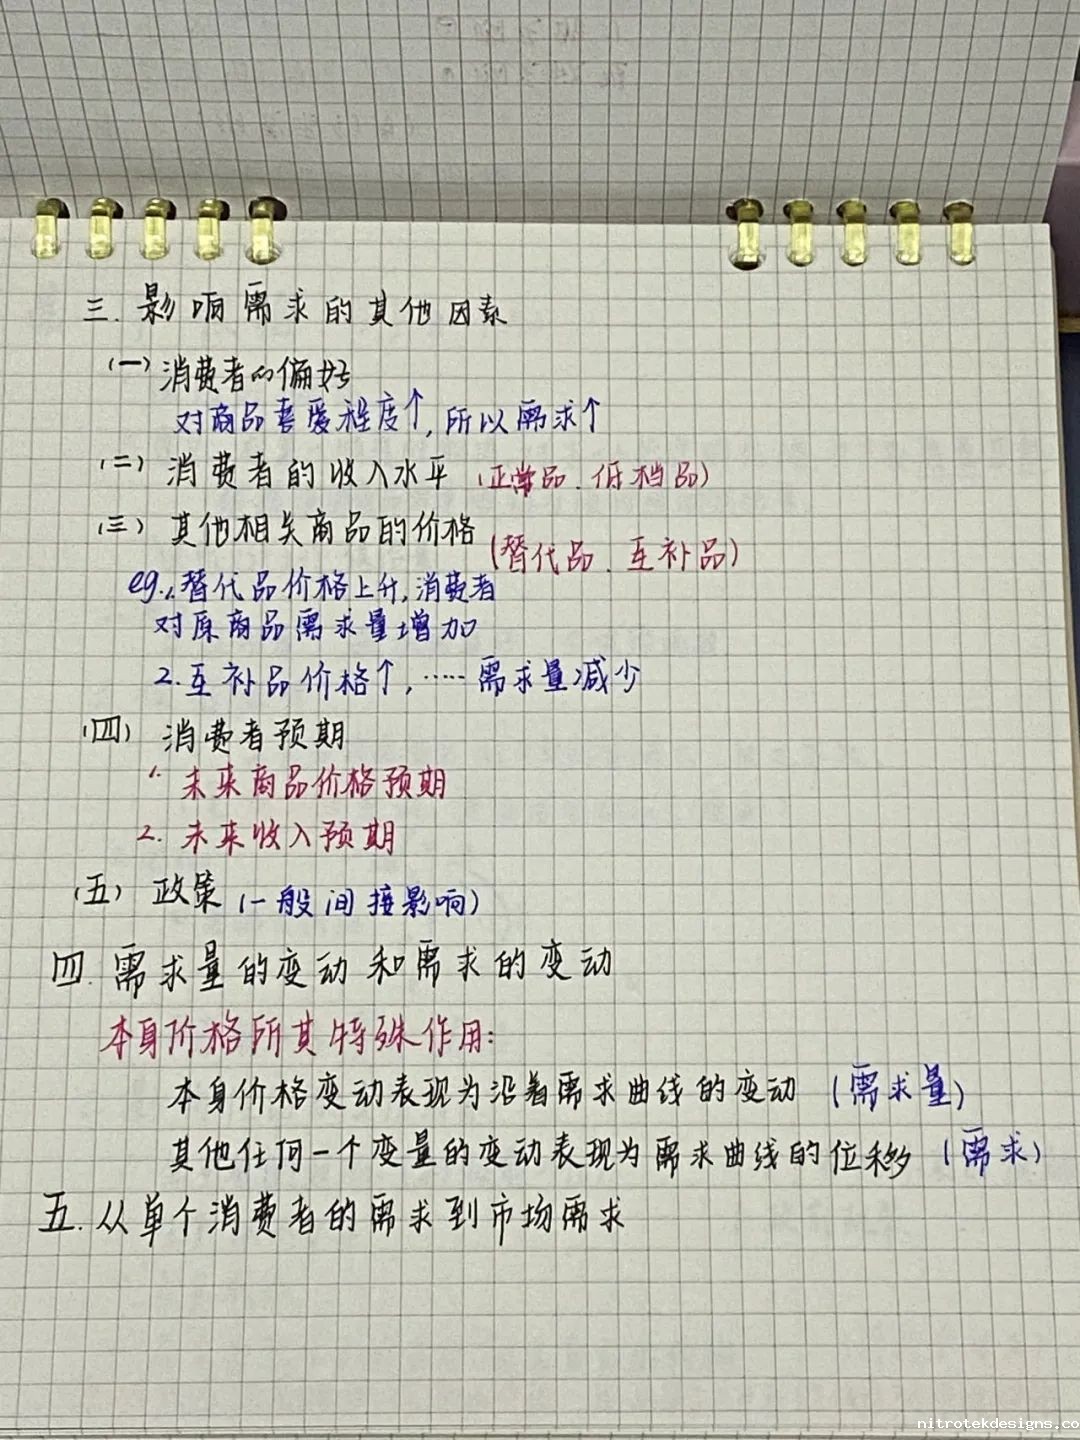 三. 影响需求的其他因素
(一) 消费者的偏好
对商品喜爱程度↑, 所以需求↑
(二) 消费者的收入水平 (正常品. 低档品)
(三) 其他相关商品的价格 (替代品. 互补品)
eg. 1. 替代品价格上升, 消费者
对原商品需求量增加
2. 互补品价格↑, …… 需求量减少
(四) 消费者预期
1. 未来商品价格预期
2. 未来收入预期
(五) 政策 (一般间接影响)
四. 需求量的变动和需求的变动
本身价格所其特殊作用:
本身价格变动表现为沿着需求曲线的变动 (需求量)
其他任何一个变量的变动表现为需求曲线的位移 (需求)
五. 从单个消费者的需求到市场需求
nitrotekdesigns.co